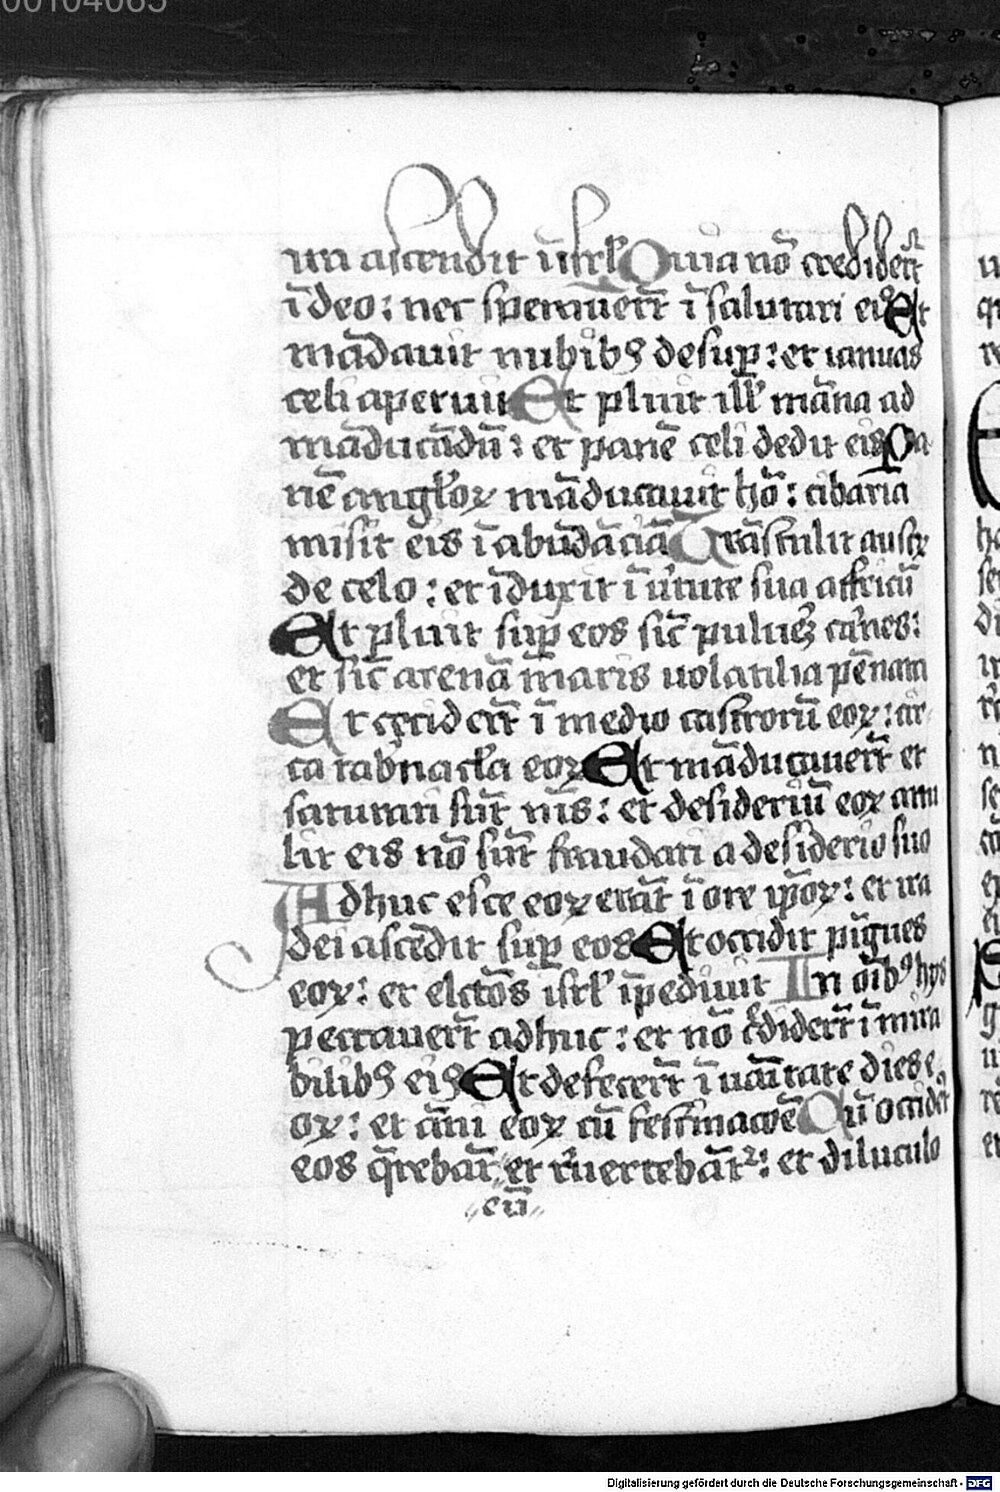 00104065
ira ascendit i̅ isrl̅ Quia no̅ credider̅t
i̅ deo: nec speraueru̅t i̅ salutari eiꝰ Et
ma̅dauit nubibꝫ desup̲: et ianuas
celi aperuit Et pluit ill̅ ma̅na ad
ma̅duca̅du̅: et pane̅ celi dedit eis Pa
ne̅ angl̅oꝝ ma̅ducauit ho̅: cibaria
misit eis i̅ abu̅da̅cia̅ Tra̅stulit austꝝ
de celo: et i̅duxit i̅ u̓tute sua affricu̅
Et pluit sup̲ eos sic̅ puluez̓ carnes:
et sic̅ arena̅ maris uolatilia pe̅nata
Et cecider̅t i̅ medio castroru̅ eoꝝ: cir
ca tab̓nac̅la eoꝝ Et ma̅ducauer̅t et
saturati su̅t nis̅: et desideriu̅ eoꝝ attu
lit eis no̅ su̅t fraudati a desiderio suo
Adhuc esce eoꝝ era̅t i̅ ore ip̅oꝝ: et ira
dei asce̅dit sup̲ eos Et occidit pi̅gues
eoꝝ: et el̅ctos isrl̅ i̅pediuit In oi̅bꝰ hys
peccauer̅t adhuc: et no̅ c̓dider̅t i̅ mira
bilibꝫ eiꝰ Et defecer̅t i̅ uai̅tate dies e
oꝝ: et a̅ni eoꝝ cu̅ festinacoe̅ Cu̅ occider̅
eos q̅reba̅t et r̓uerteba̅tꝛ: et diluculo
eu̅
Digitalisierung gefördert durch die Deutsche Forschungsgemeinschaft - DFG